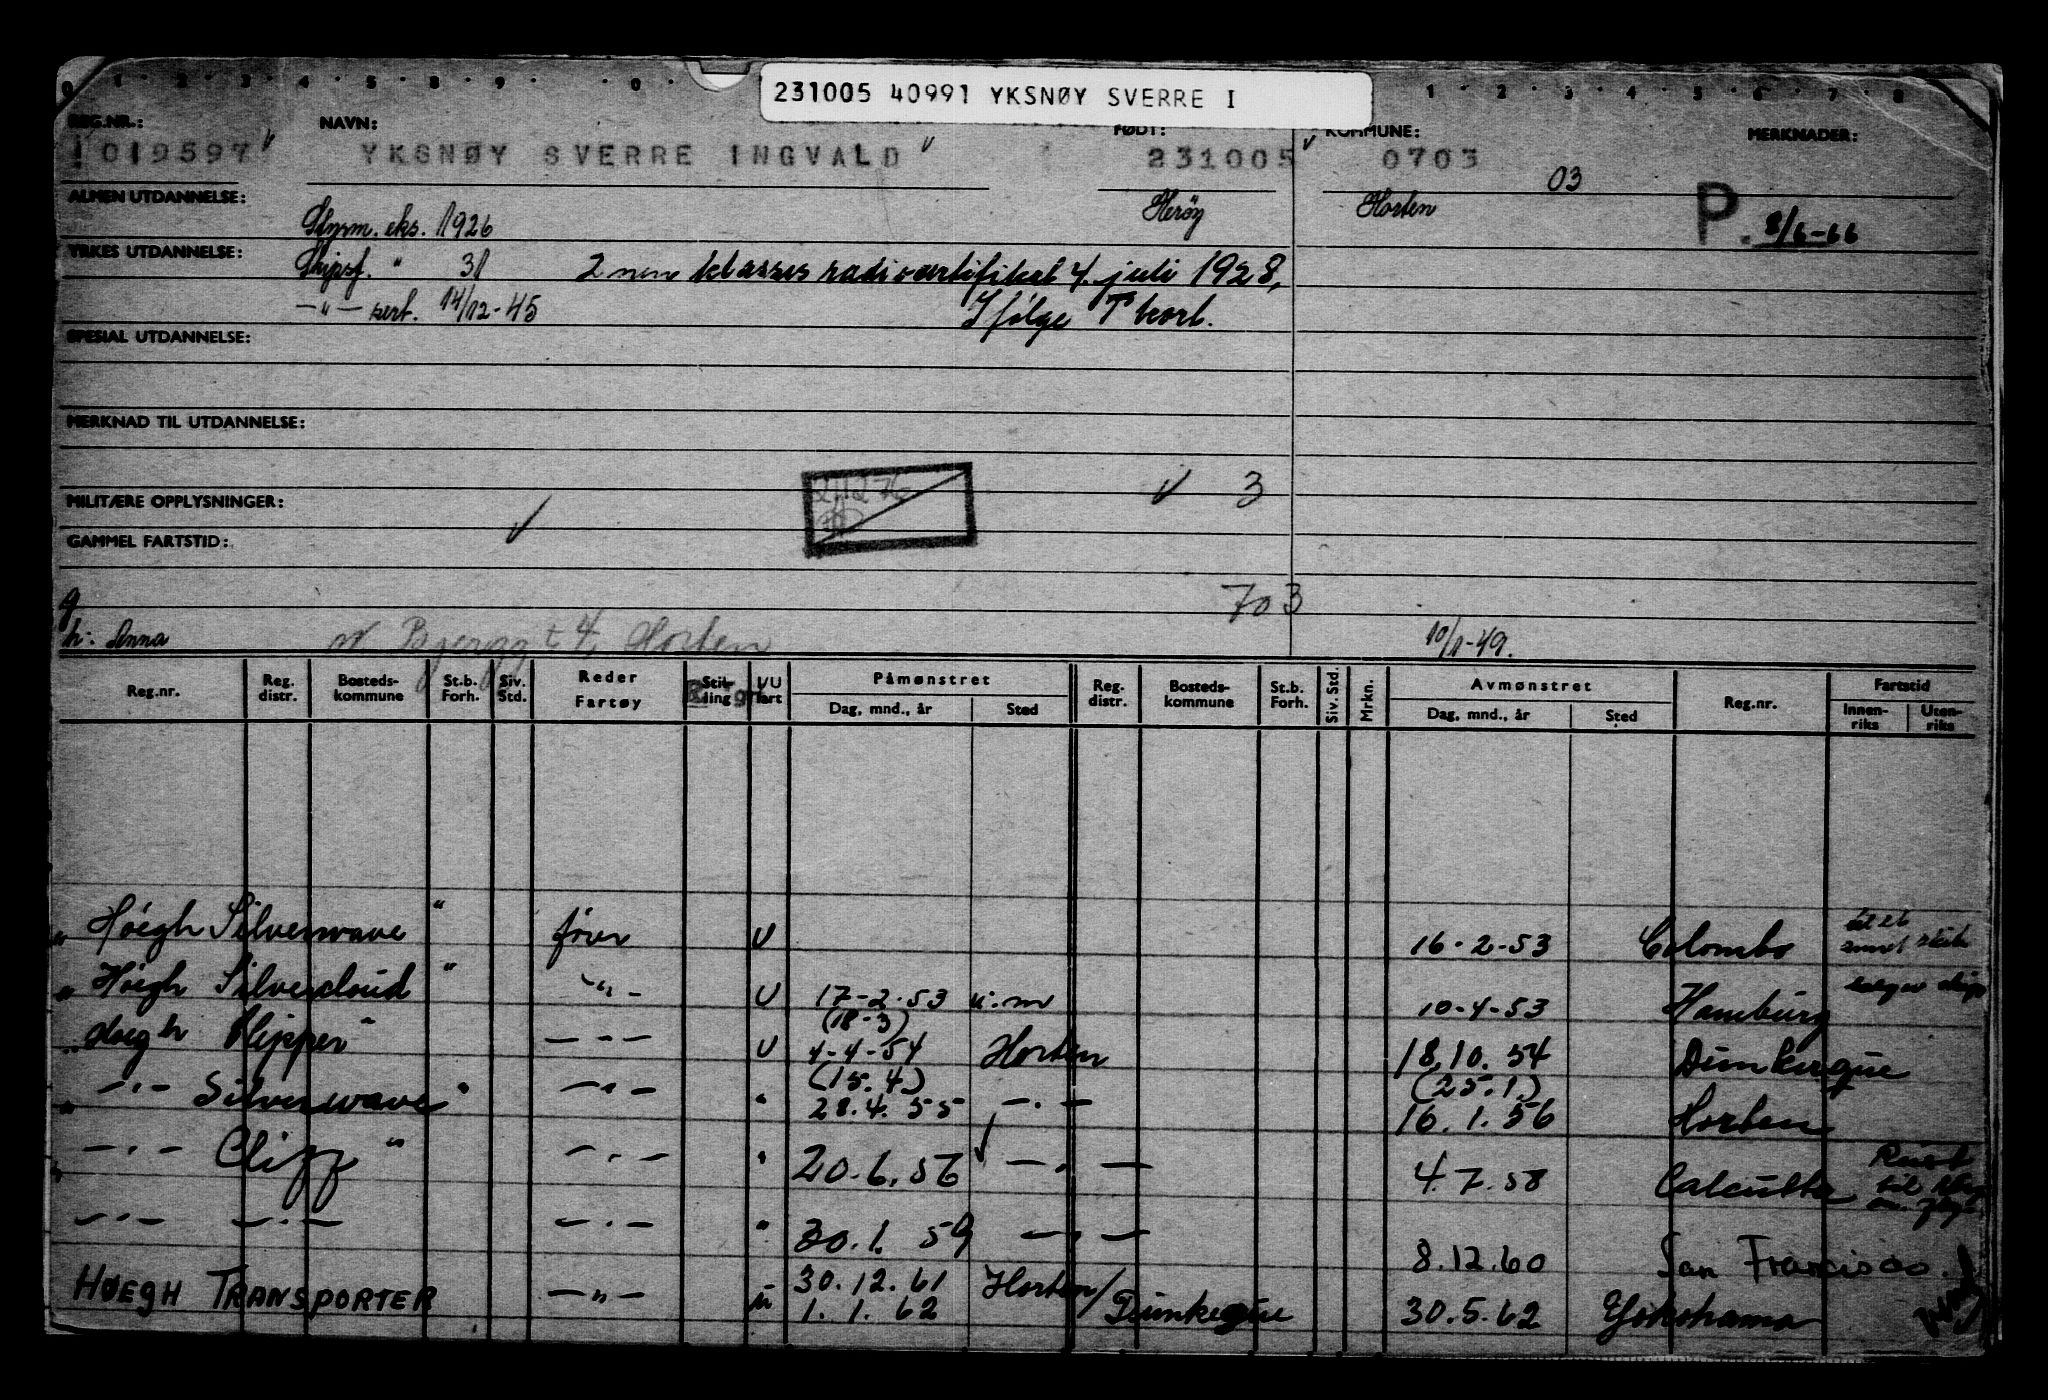 231005 40991 YKSNØY SVERRE I
REG.NR.: NAVN: FØDT: KOMMUNE: MERKNADER:
1019597 YKSNØY SVERRE INGVALD 231005 0703
03
ALMEN UTDANNELSE: Styrm. eks. 1926 Herøy Horten P. 8/6-66
YRKES UTDANNELSE: Skipsf. " 31 2nen klasses radiosertifikat 4. juli 1928,
—"— sert. 14/12-45 Ifølge T kort.
SPESIAL UTDANNELSE:
MERKNAD TIL UTDANNELSE:
MILITÆRE OPPLYSNINGER: 3
GAMMEL FARTSTID:
703
g
h: Anna Horten 10/1-49.
Reg.nr. Reg. distr. Bosteds-kommune St.b. Forh. Siv. Std. Reder Fartøy Stilling I/U fart Påmønstret Dag, mnd., år Sted Reg. distr. Bosteds-kommune St.b. Forh. Siv. Std. Mrkn. Avmønstret Dag, mnd., år Sted Reg.nr. Fartstid Innen-riks Uten-riks
" Høegh Silverwave " fører U 16-2-53 Colombo
" Høegh Silvercloud " -"- U 17-2-53 u.m 10-4-53 Hamburg
(18-3)
" Høegh Klipper " -"- U 4-4-54 Horten 18.10.54 Dunkerque
(15.4.) (25.1.)
" -"- Silverwave " -"- " 28.4.55 -"- 16.1.56 Horten
" -"- Cliff " -"- " 20.6.56 -"- 4.7.58 Calcutta
-"- -"- -"- " 30.1.59 -"- 8.12.60 San Francisco.
HØEGH TRANSPORTER -"- u 30.12.61 Horten/
1.1.62 Dunkeque 30.5.62 Yokohama